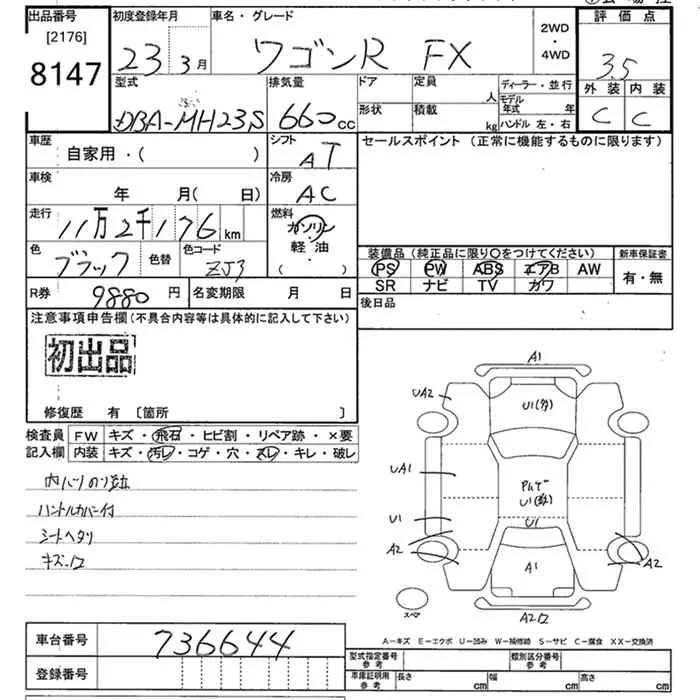 出品番号
[2176]
8147
初度登録年月
23年3月
車名・グレード
ワゴンR FX
2WD
・
4WD
評価点
3.5
外装 内装
C C
型式
DBA-MH23S
排気量
660cc
ドア
形状
定員 人
積載 kg
ディーラー・並行
モデル年式 年
ハンドル 左・右
車歴
自家用・( )
シフト
AT
セールスポイント (正常に機能するものに限ります)
車検
年 月(日)
冷房
AC
走行
11万2千176km
燃料
ガソリン
軽・油
( )
色
ブラック
色替
色コード
ZJ3
装備品 (純正品に限り○をつけてください)
PS PW ABS エアB AW
SR ナビ TV カワ
新車保証書
有・無
R券 9880円
名変期限 月 日
後日品
注意事項申告欄 (不具合内容等は具体的に記入して下さい)
初出品
修復歴 有 [箇所 ]
検査員記入欄
FW キズ・飛石・ヒビ割・リペア跡・×要
内装 キズ・汚レ・コゲ・穴・スレ・キレ・破レ
ハンドルカバー付
シートヘタリ
A1
UA2
U1
UA1
U1(
U1
U1
A2
A2
A1
スペア
A2
A-キズ E-エクボ U-凹み W-補修跡 S-サビ C-腐食 XX-交換済
車台番号 736644
登録番号
型式指定番号 参考
類別区分番号 参考
車庫証明用 参考
長さ cm
幅 cm
高さ cm